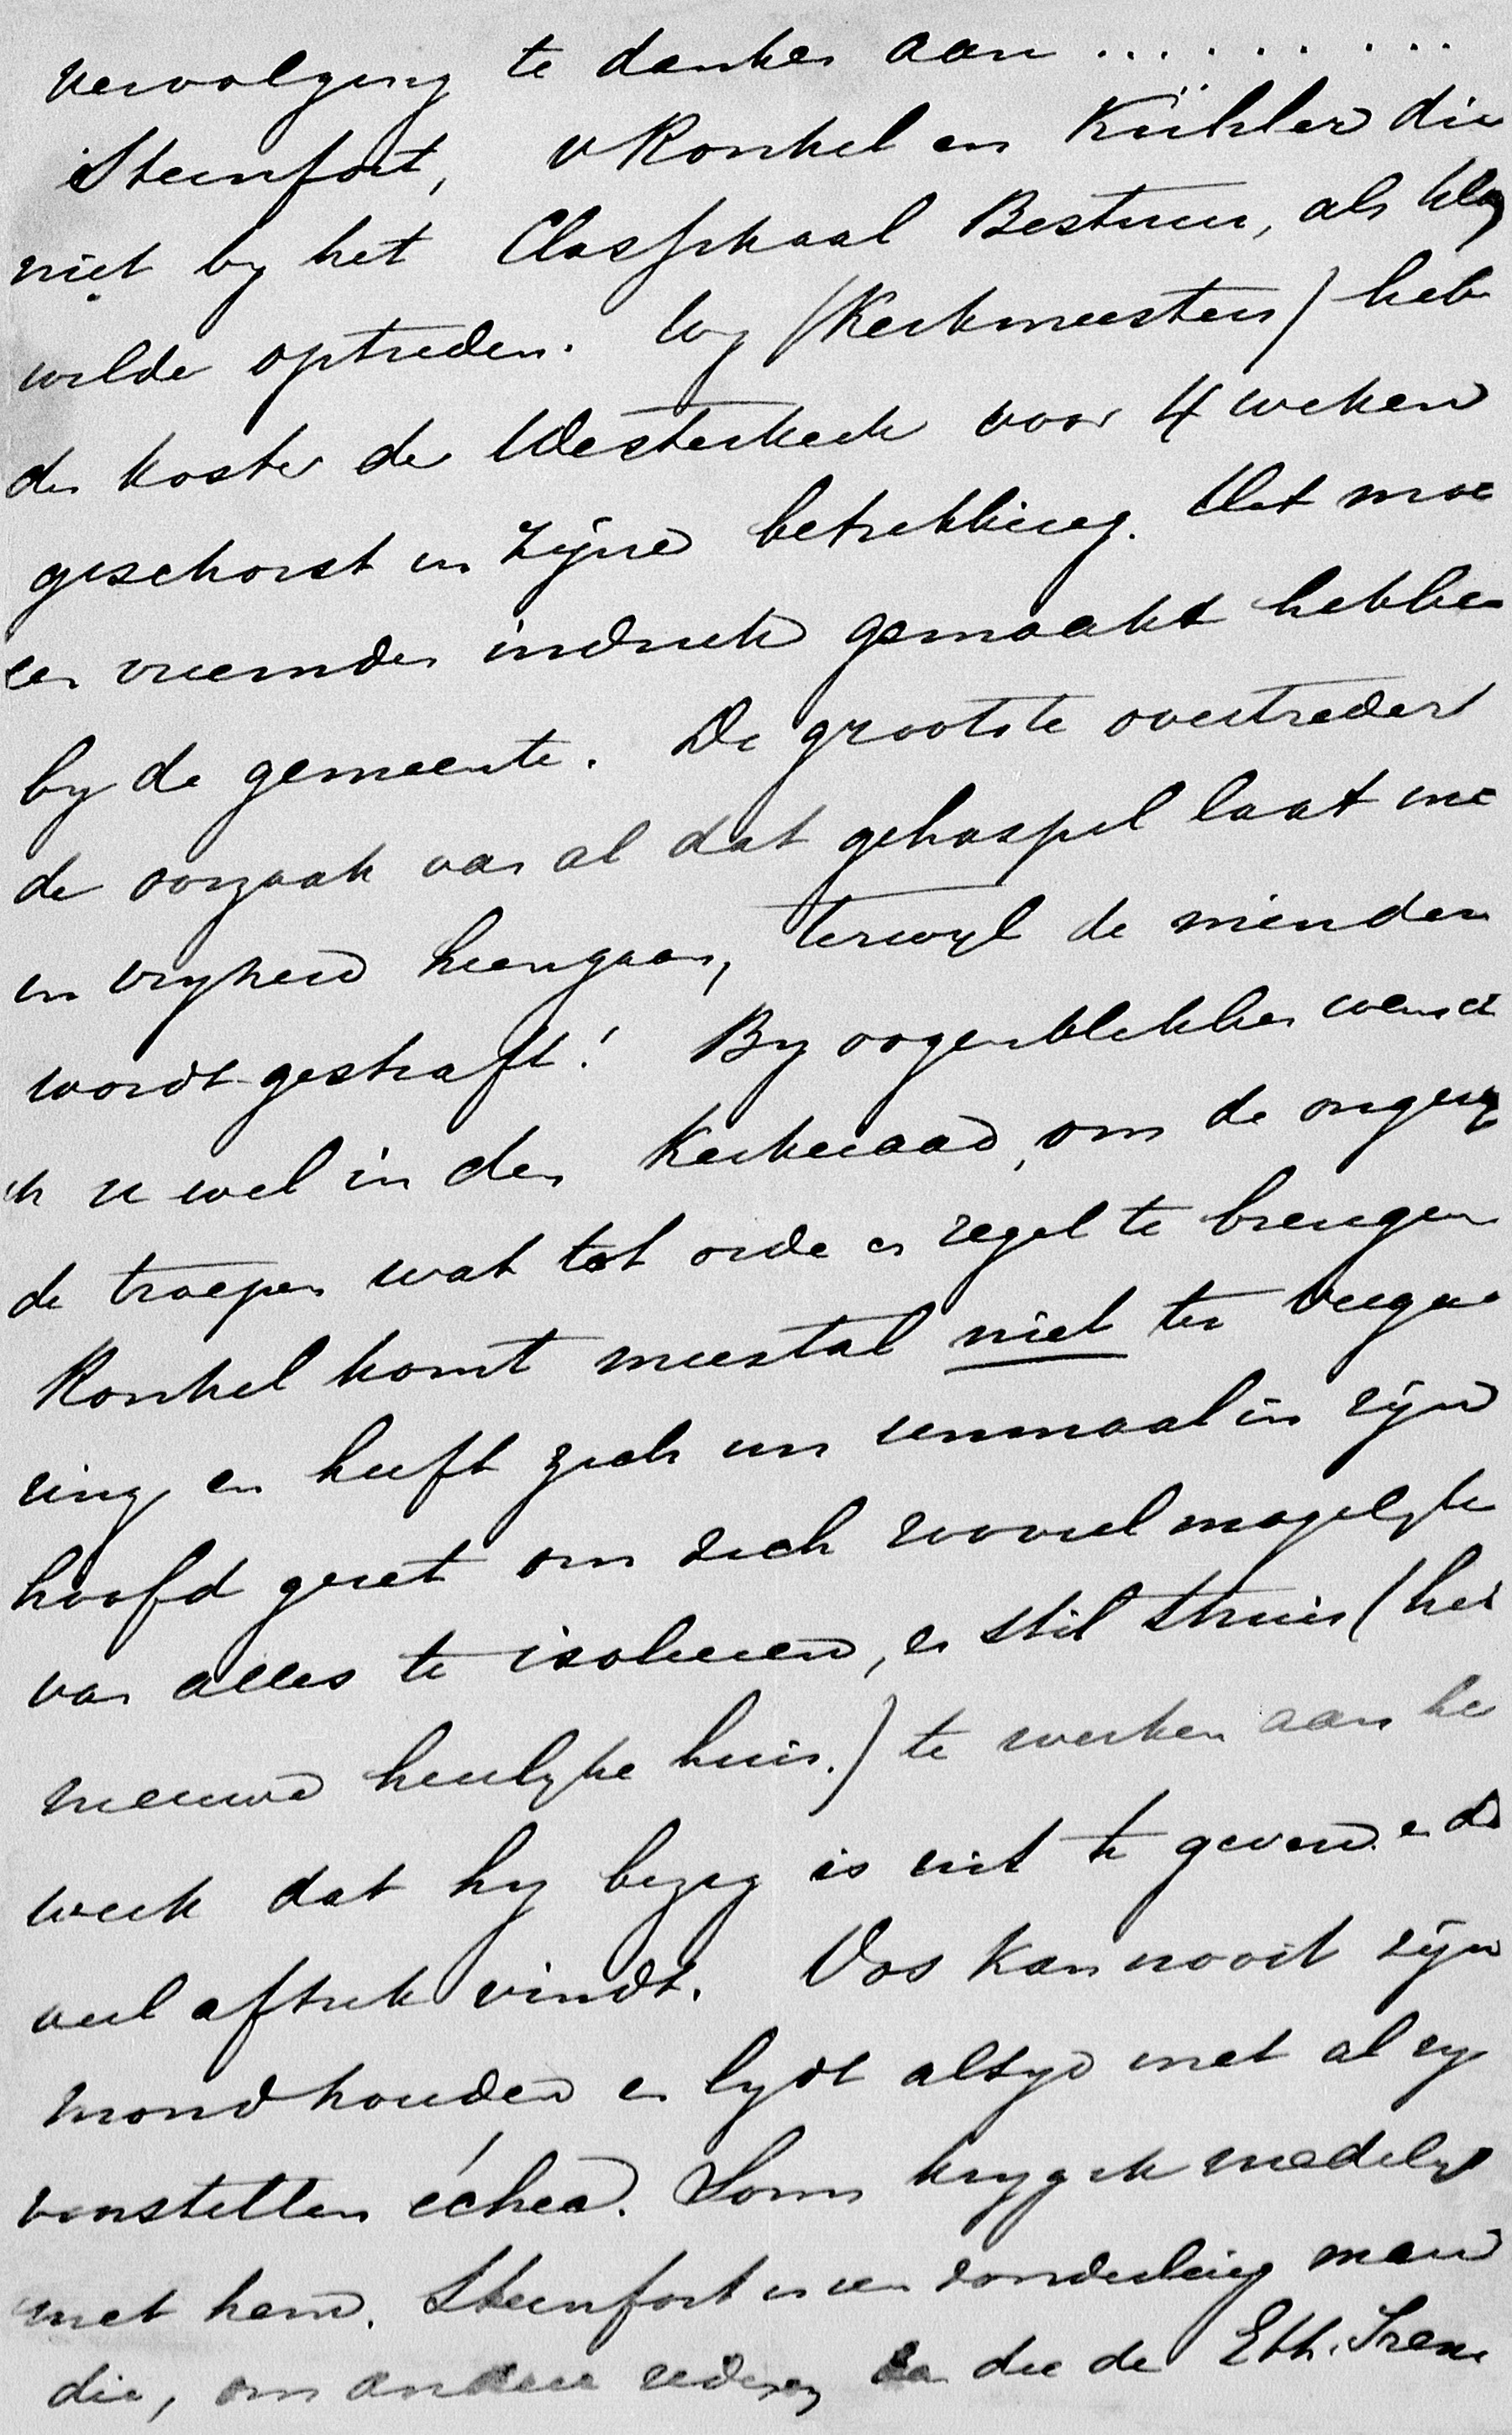 vervolging te danken aan ..........
Steenfort, v Ronkel en Kühler die
niet by het Classikaal Bestuur, als klag
wilde optreden. Wy (Kerkmeesters) heb
den koster der Westerkerk voor 4 weken
geschorst in zijne betrekking. Het moe
een vreemden indruk gemaakt hebben
by de gemeente. De grootste overtreder
de oorzaak van al dat gehaspel laat me
in vryheid heengaan, terwyl de minder
wordt gestraft! By oogenblikken wensch
ik u wel in den Kerkeraad, om de ongere
de troepen wat tot orde en regel te brengen
Ronkel komt meestal niet ter verga
ring en heeft zich nu eenmaal in zijn
hoofd gezet om zich zooveel mogelyk
van alles te isoleeren, en stil thuis (het
nieuwe heerlyke huis.) te werken aan he
werk dat hy bezig is uit te geven en da
veel aftrek vindt. Vos kan nooit zijn
mond houden en lydt altyd met al zy
voorstellen échec. Soms kryg ik medely
met hem. Steenfort is een zonderling man
die, om andere redenen dan die de Eth. Iren